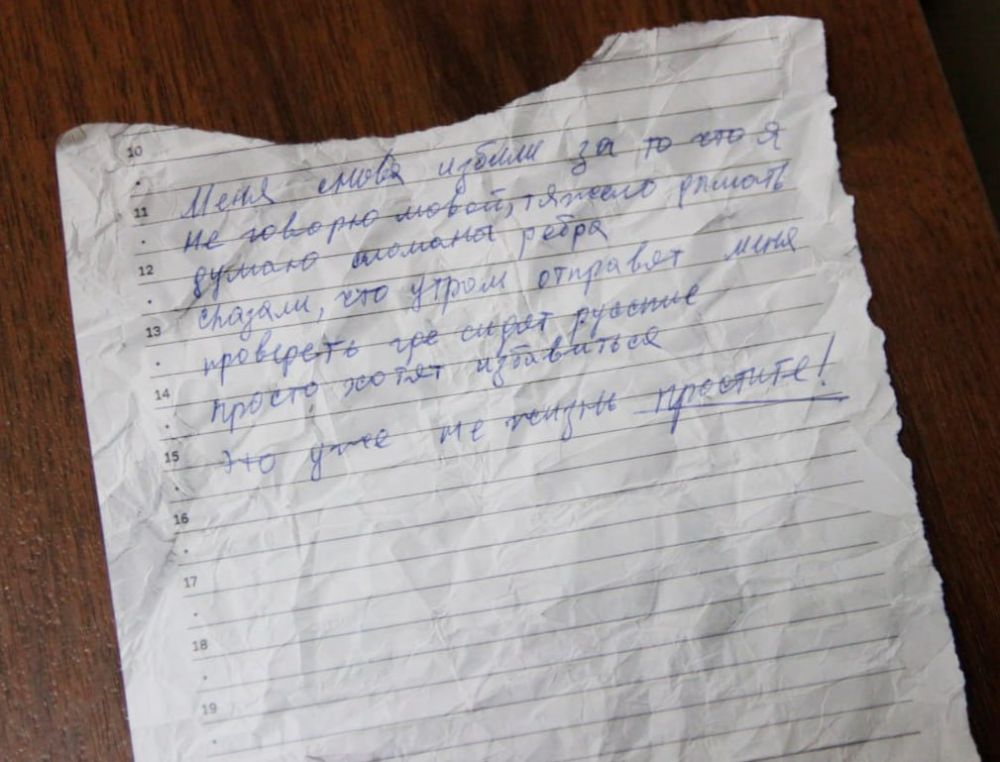 10
Меня снова избили за то что я
11
не говорю мовой, тяжело дышать
думаю сломаны ребра
12
сказали, что утром отправят меня
13
проверять где сидят русские
просто хотят избавиться
14
это уже не жизнь простите!
15
16
17
18
19